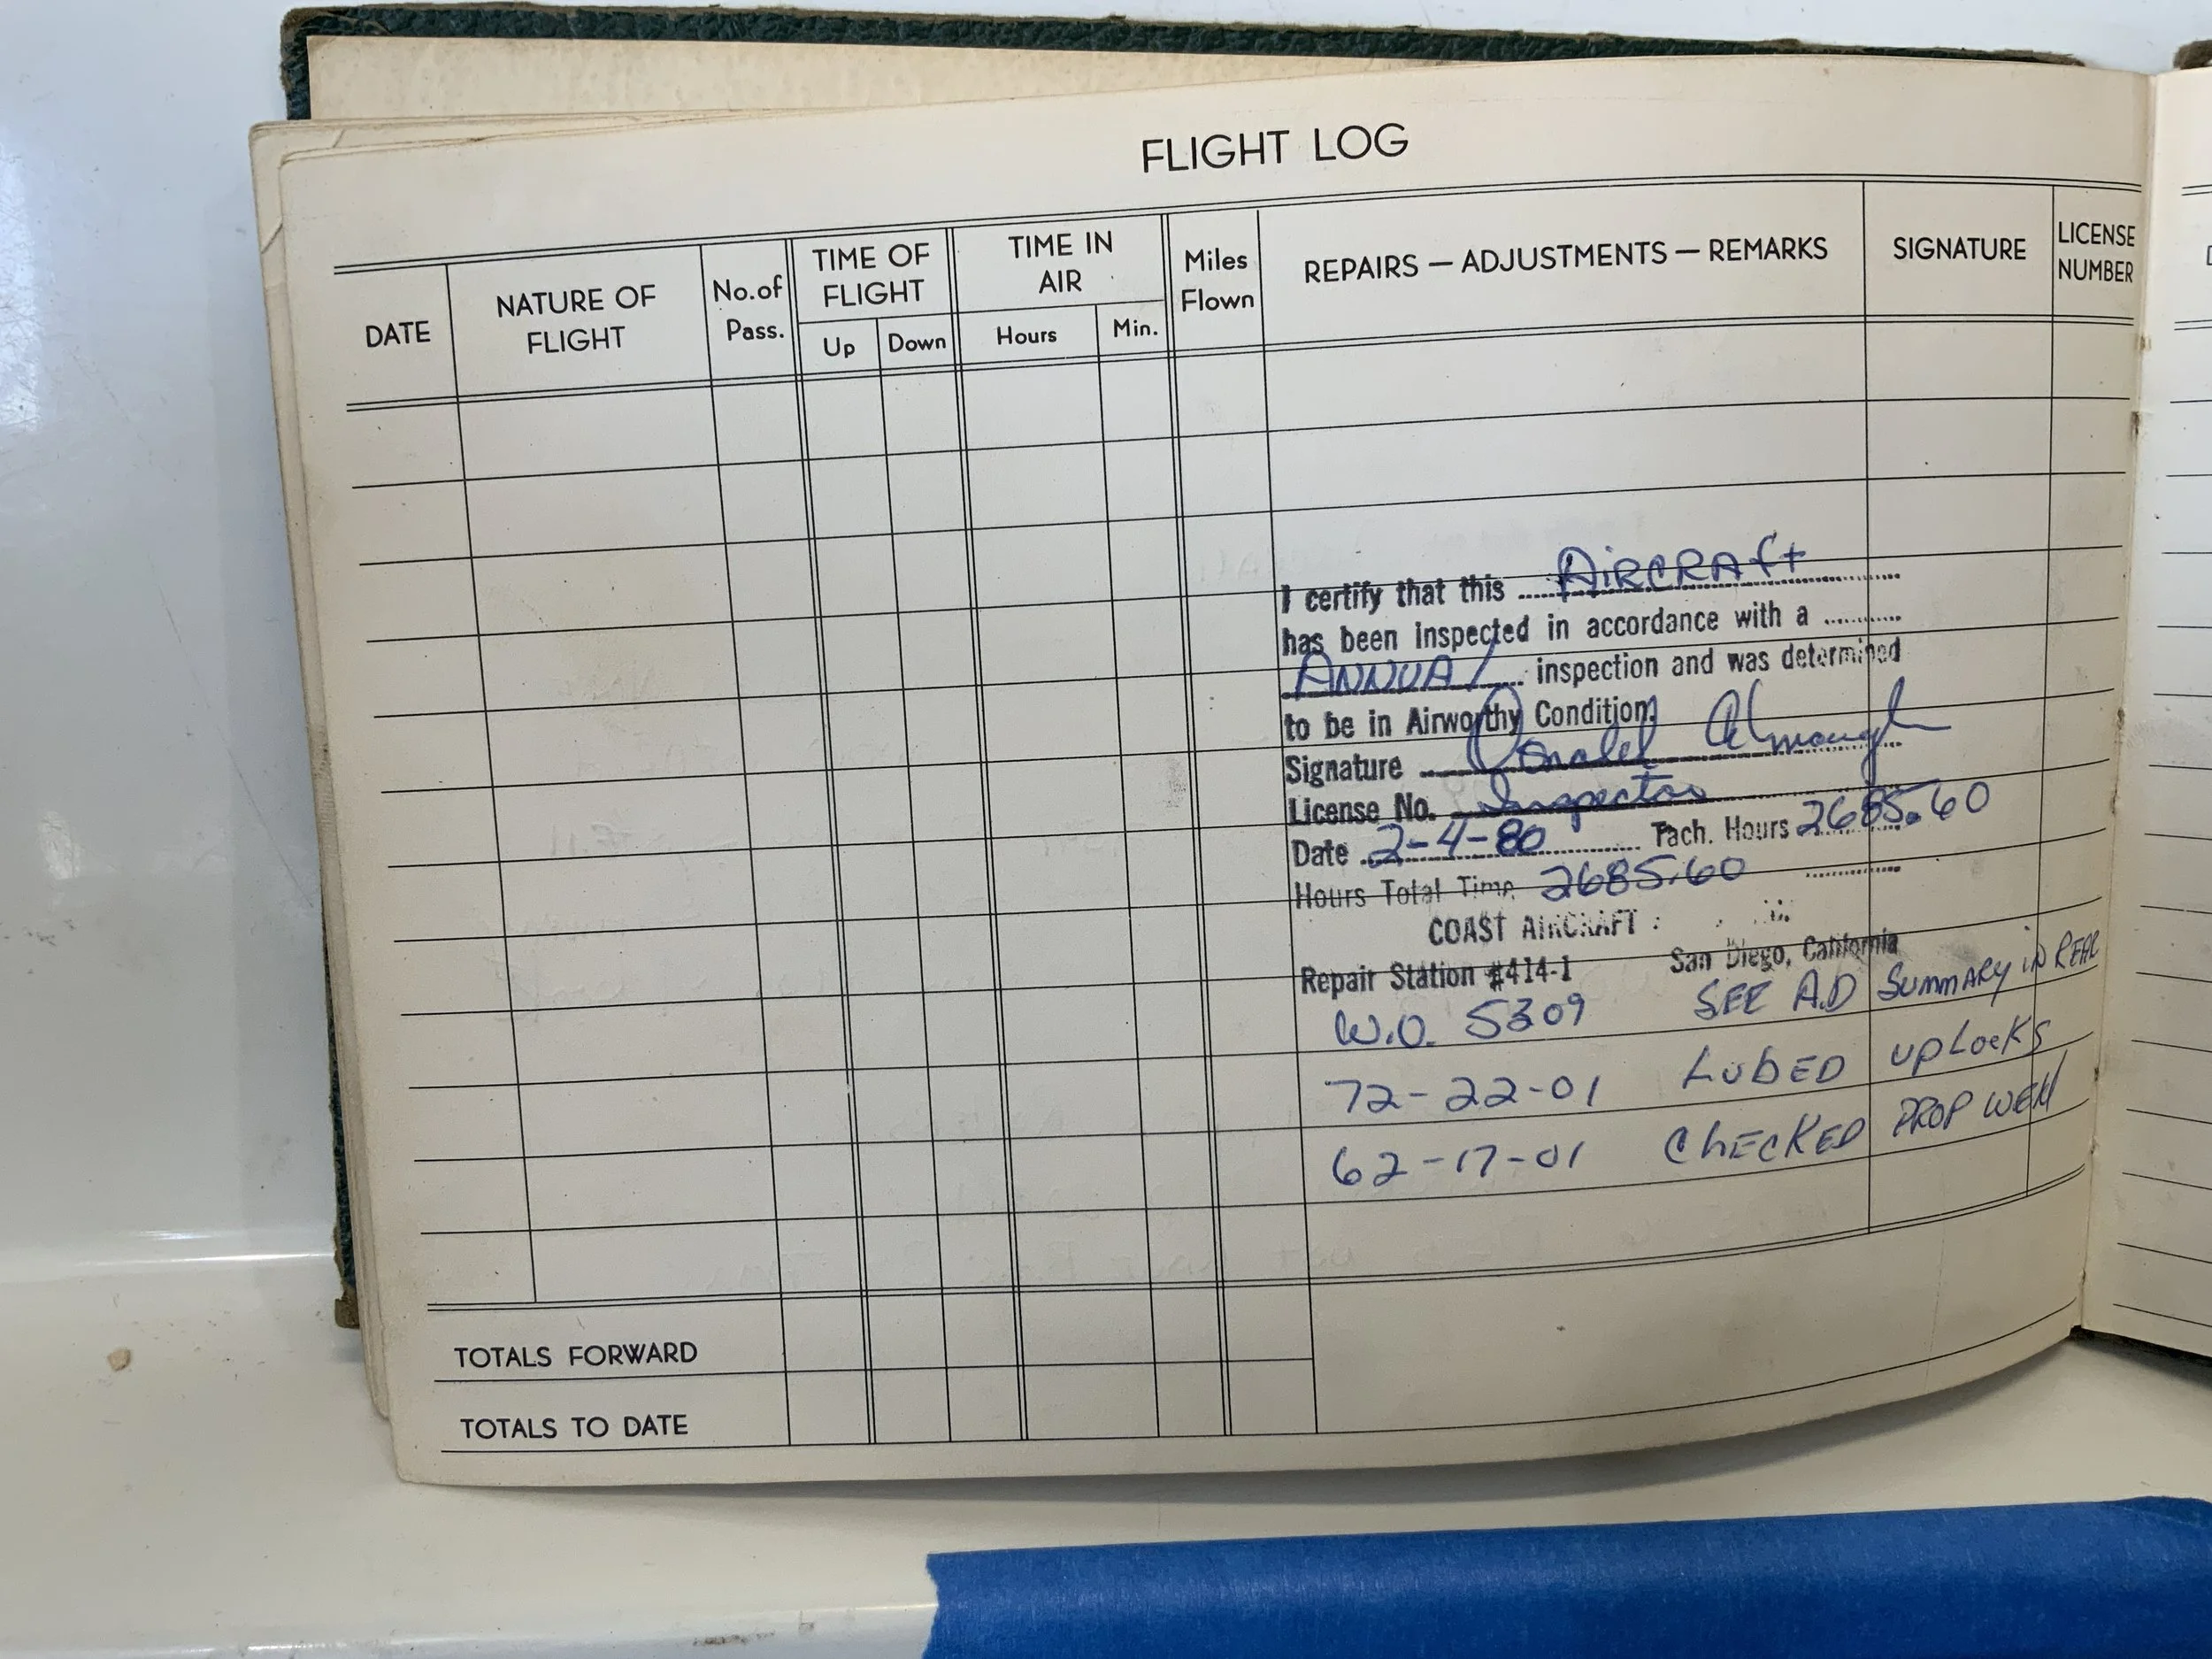 FLIGHT LOG
DATE
NATURE OF FLIGHT
No. of Pass.
TIME OF FLIGHT
Up
Down
TIME IN AIR
Hours
Min.
Miles Flown
REPAIRS — ADJUSTMENTS — REMARKS
SIGNATURE
LICENSE NUMBER
I certify that this AIRCRAft
has been inspected in accordance with a
ANNUAl inspection and was determined
to be in Airworthy Condition.
Signature Donald
License No. Inspector
Date 2-4-80 Tach. Hours 2685.60
Hours Total Time 2685.60
COAST AIRCRAFT
Repair Station #414-1 San Diego, California
W.O. 5309 SEE A.D SUMMARY iN REAR
72-22-01 LUbED UPLocKS
62-17-01 ChECKED PROP WEll
TOTALS FORWARD
TOTALS TO DATE